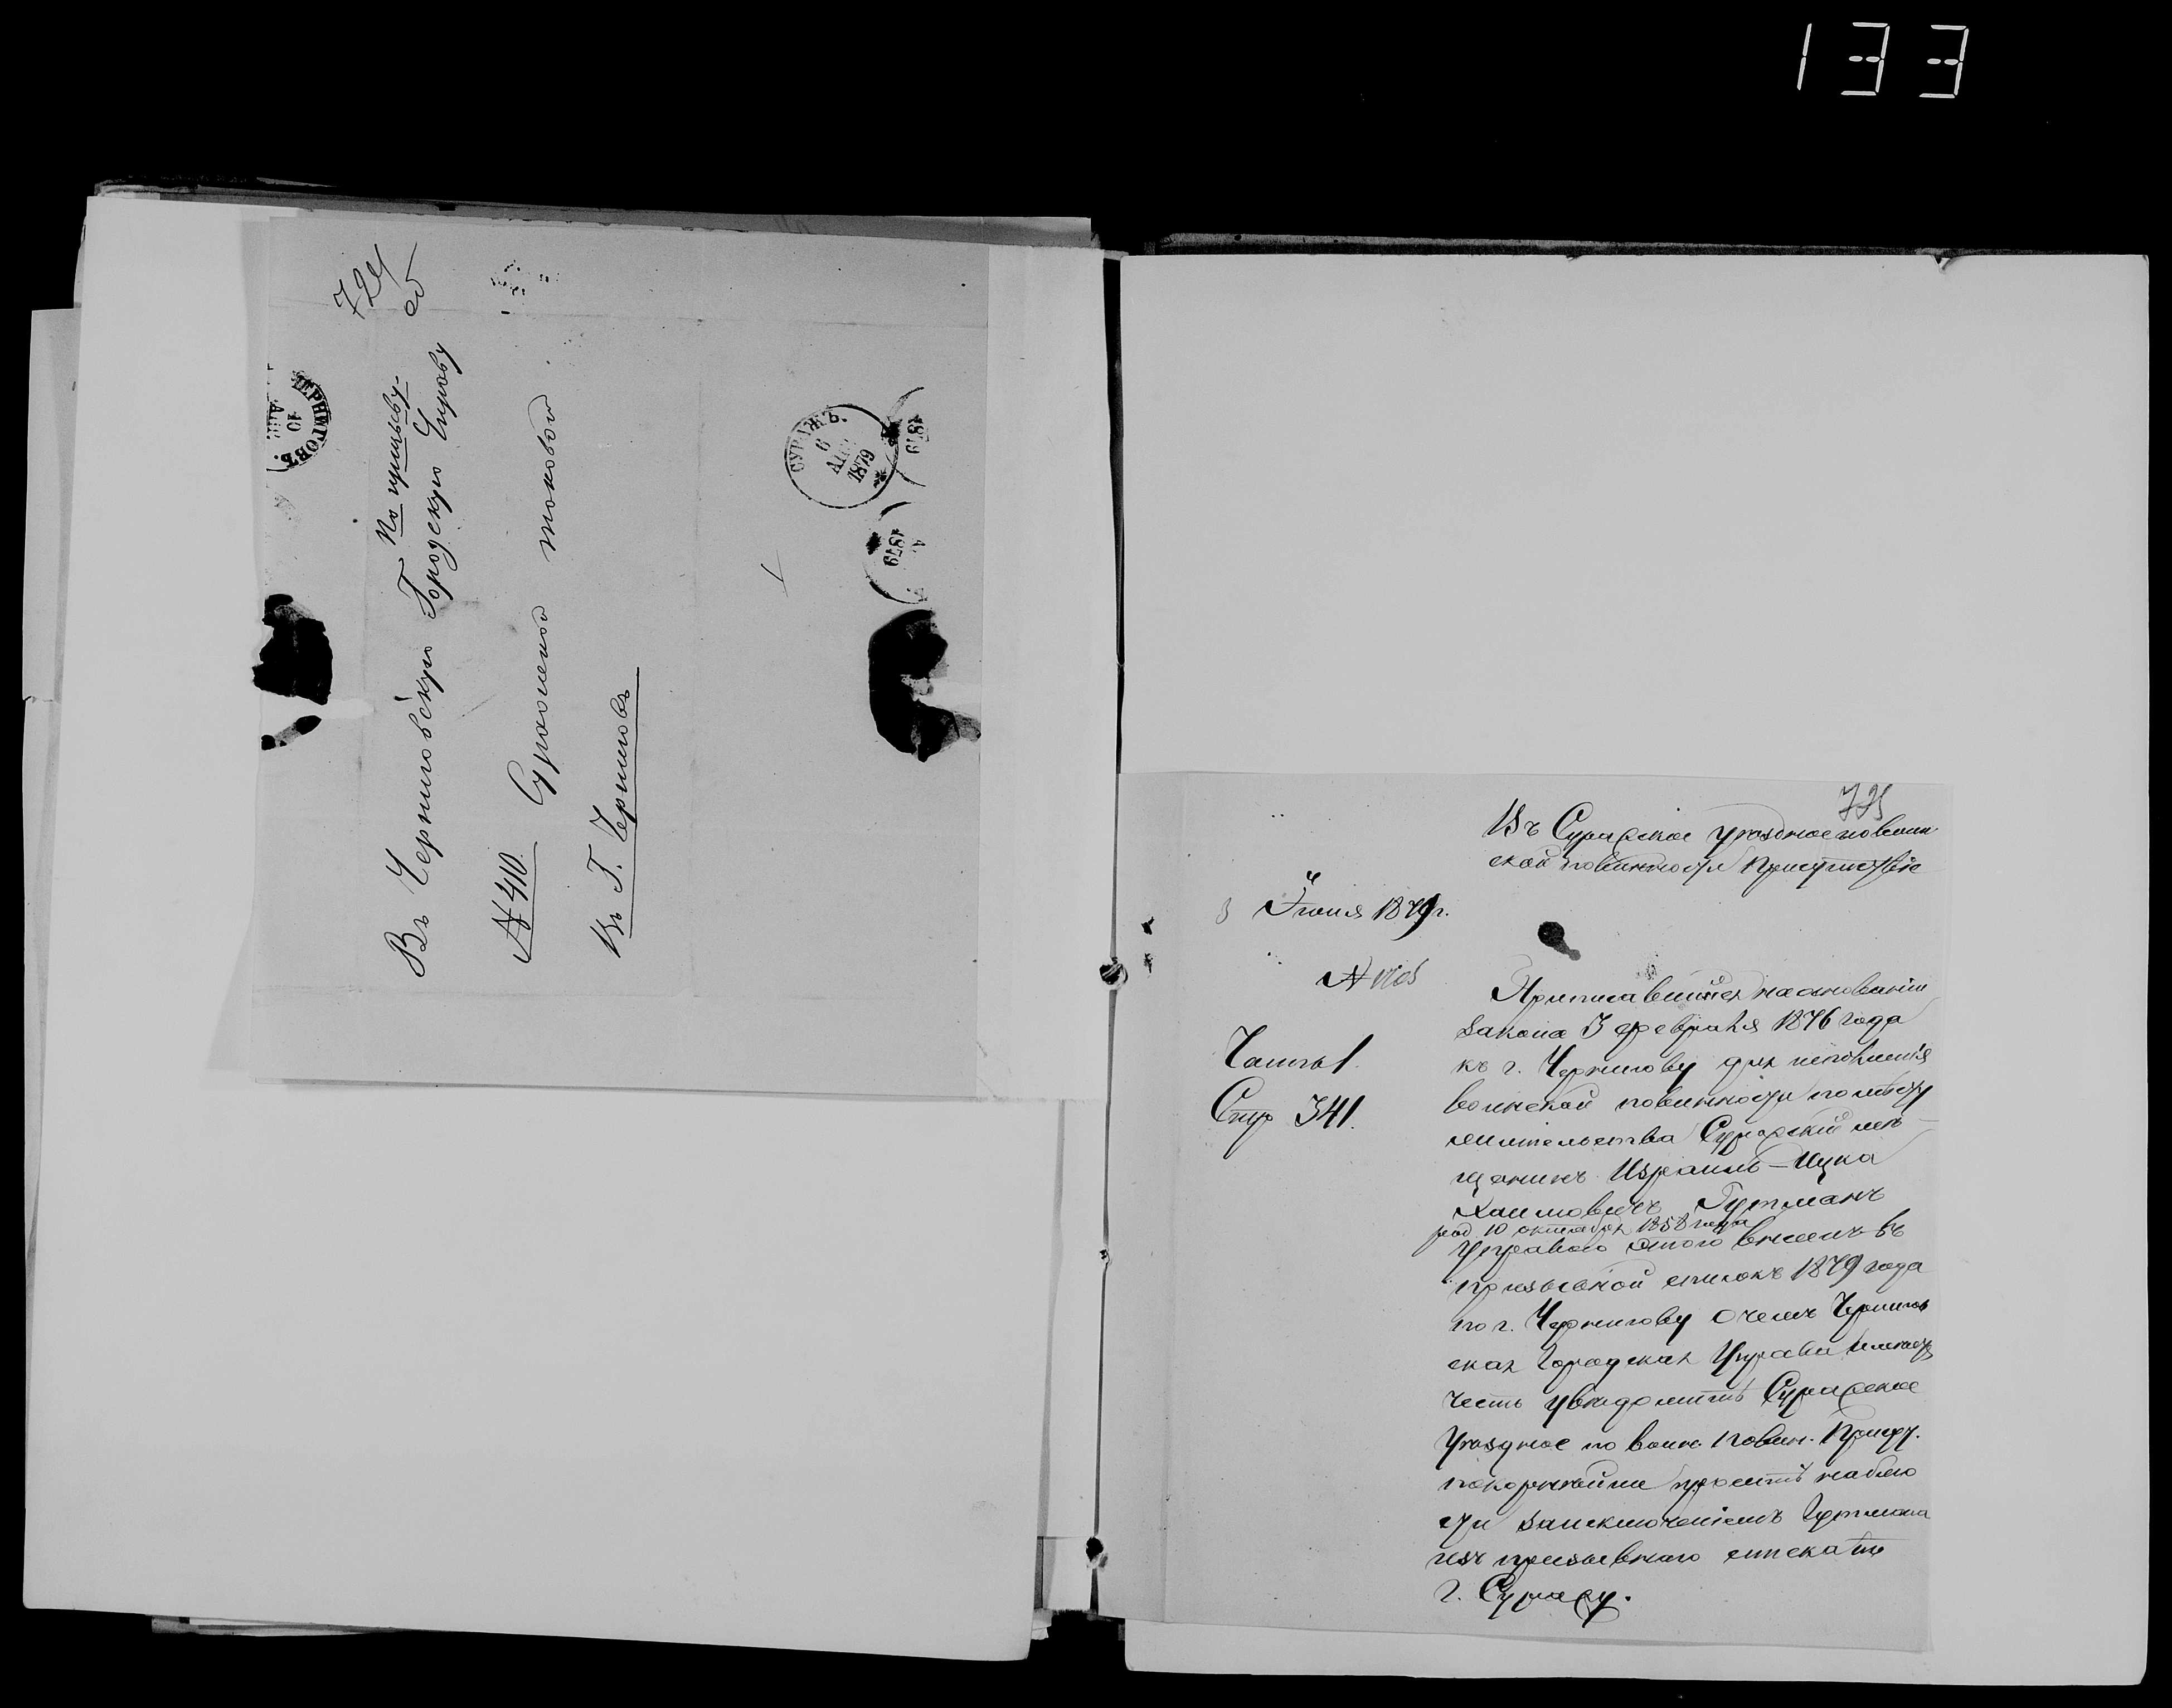 133
724
об
По призыву.
Въ Черниговскую Городскую Управу
№ 410. Суражской таковой
Въ Г. Черниговъ
ЧЕРНИГОВЪ
10
АПР.
СУРАЖЪ.
6
АПР
1879
1879
1879
725
Въ Суражское уѣздное по воин
ской повинности Присутствіе
Іюня 1879 г.
№
Часть 1.
Стр 341.
Приписавшійся на основаніи
закона 3 февраля 1876 года
къ г. Чернигову для исполненія
воинской повинности по мѣсту
жительства Суражскій мѣ-
щанинъ Израиль-Ицка
Хаимовичъ Гутманъ
род 10 октября 1858 года
Управою этою внесенъ въ
призывной списокъ 1879 года
по г. Чернигову о чемъ Чернигов
ская Городская Управа имѣетъ
честь увѣдомить Суражское
Уѣздное по воин. повин. Присут.
покорнѣйше просить наблю
сти за исключеніемъ Гутмана
изъ призывнаго списка по
г. Суражу.